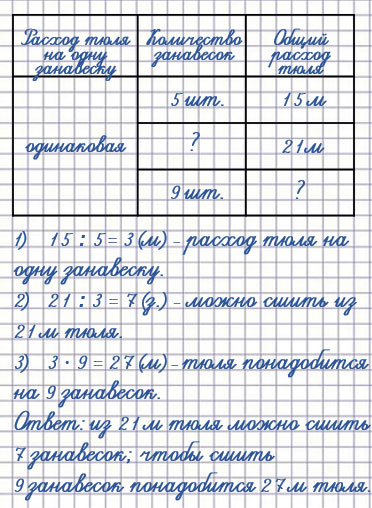 Расход тюля на одну занавеску
Количество занавесок
Общий расход тюля
одинаковая
5 шт.
15 м
?
21 м
9 шт.
?
1) 15 : 5 = 3 (м) – расход тюля на
одну занавеску.
2) 21 : 3 = 7 (з.) – можно сшить из
21 м тюля.
3) 3 · 9 = 27 (м) – тюля понадобится
на 9 занавесок.
Ответ: из 21 м тюля можно сшить
7 занавесок; чтобы сшить
9 занавесок понадобится 27 м тюля.